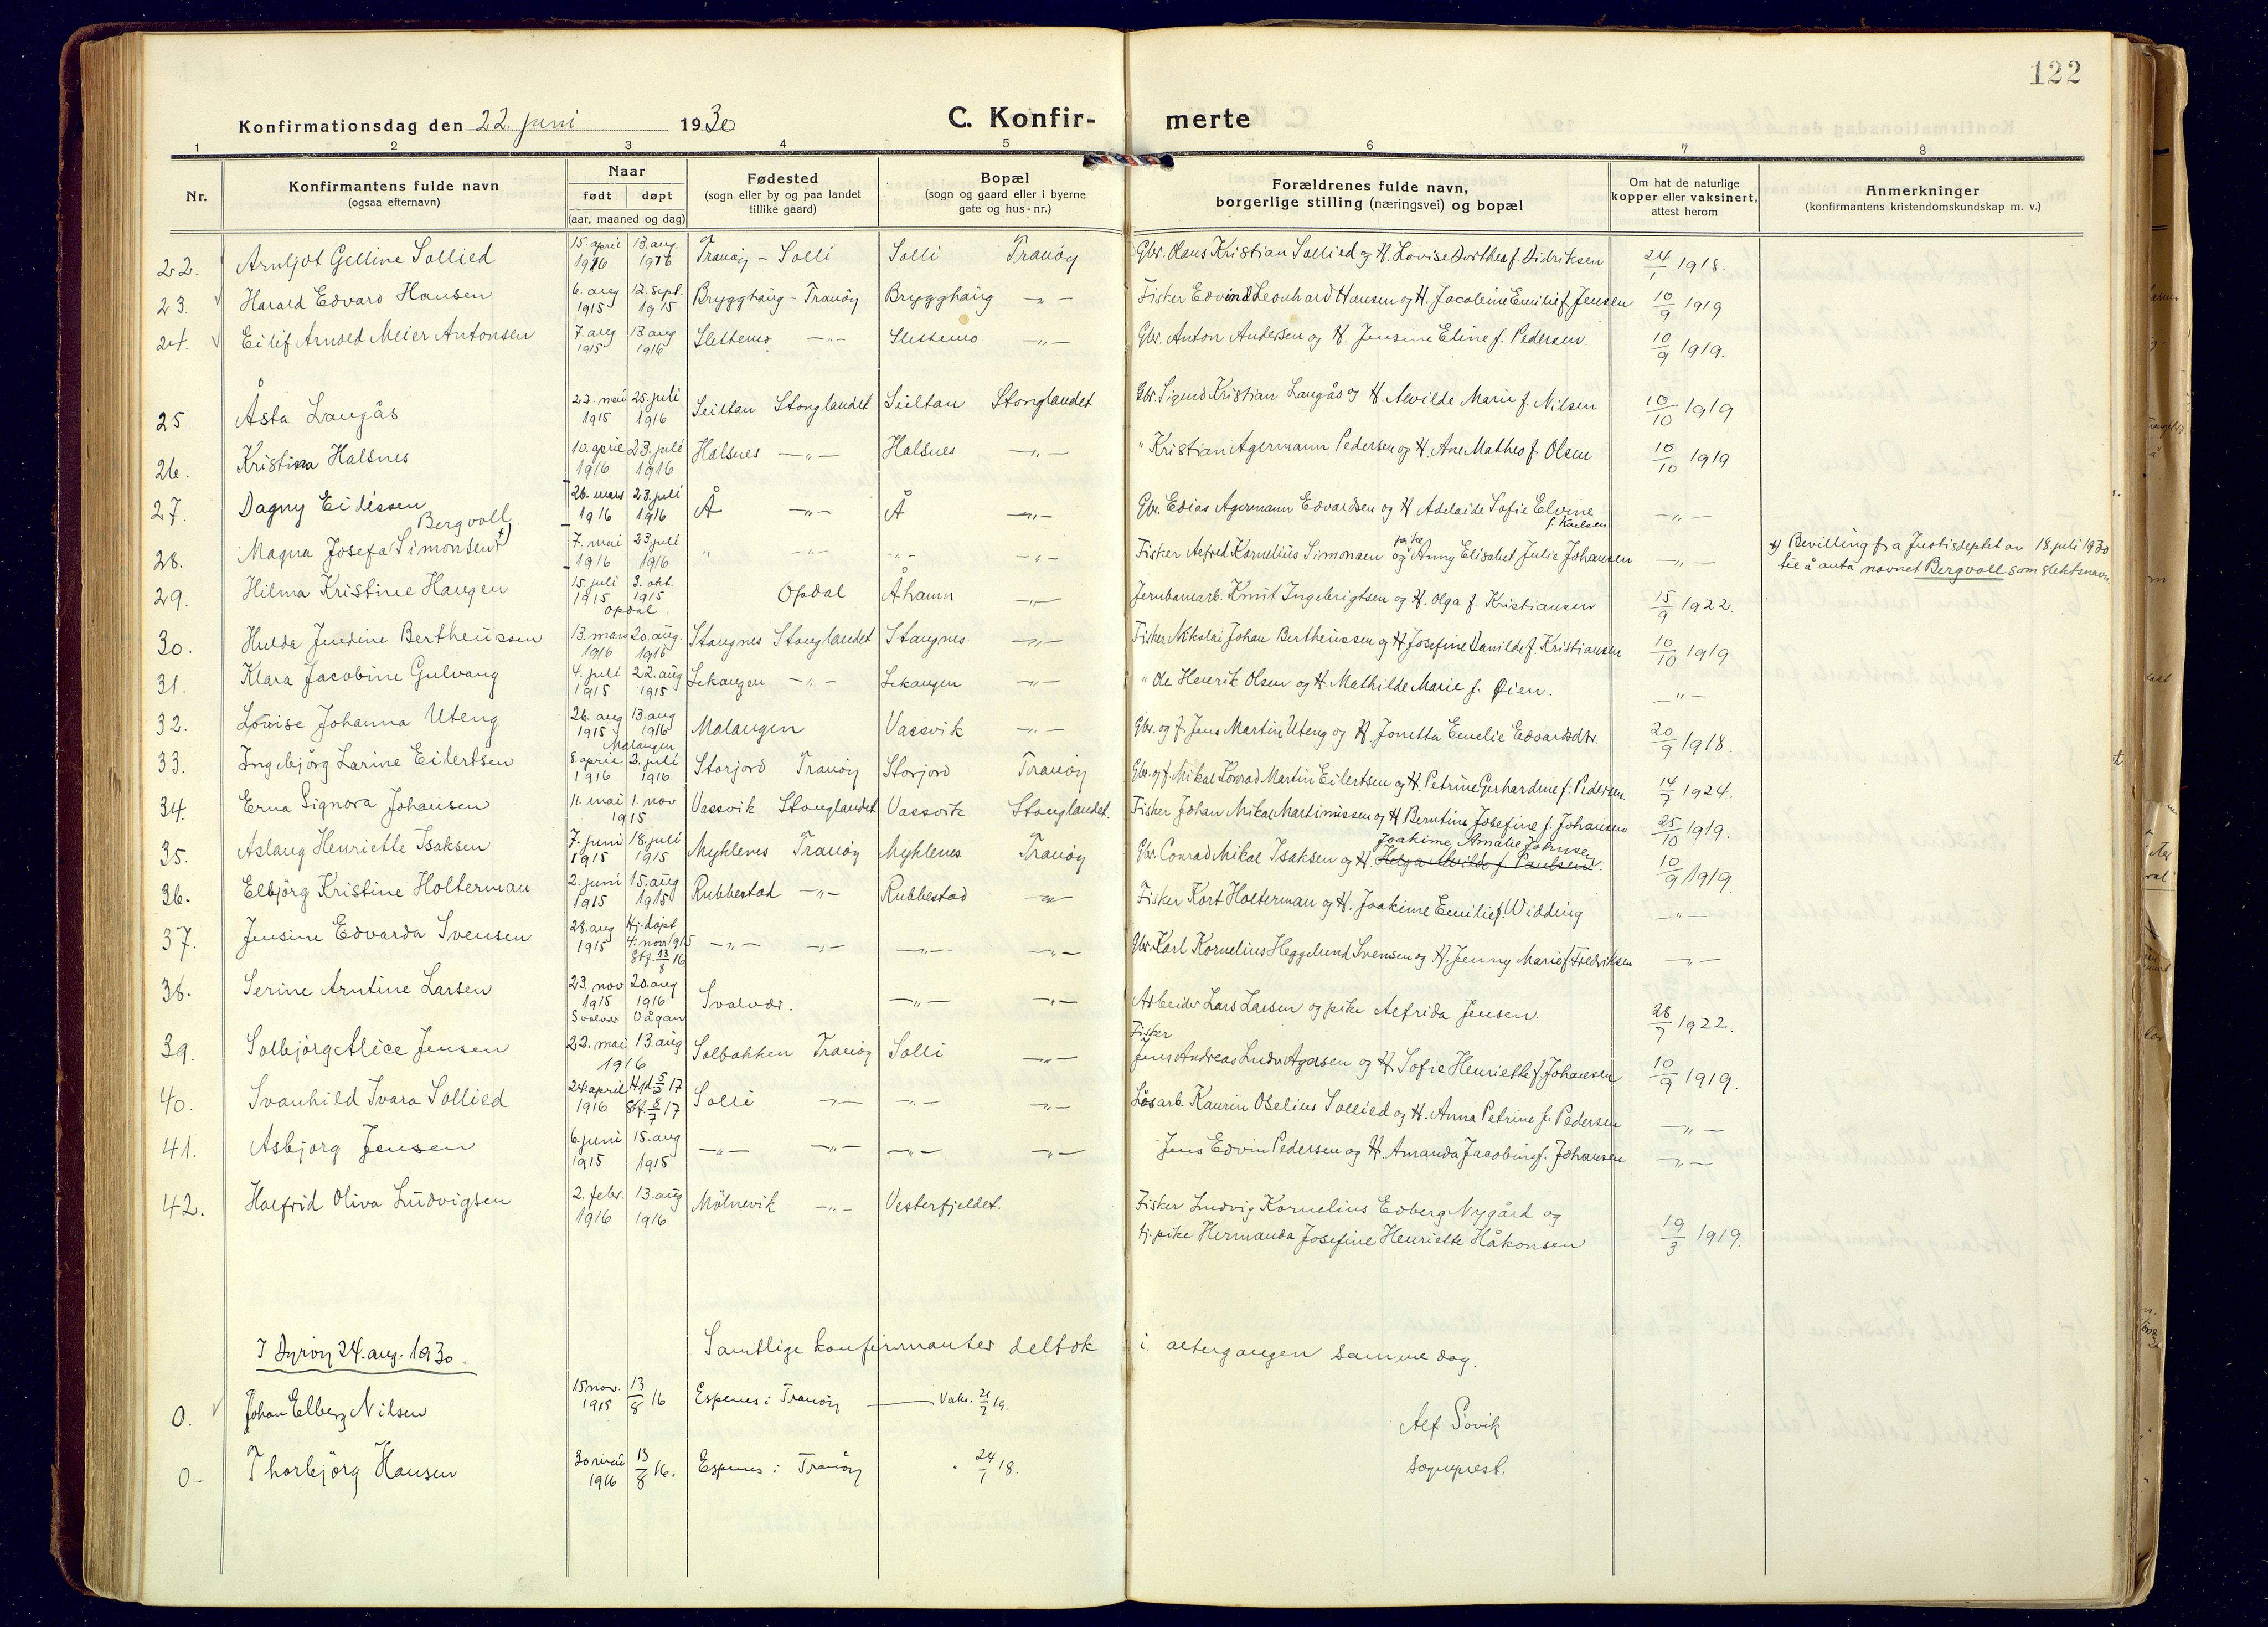 122
Konfirmationsdag den 22. juni 1930
C. Konfir- merte
1 2 3 4 5 6 7 8
Nr.
Konfirmantens fulde navn
(ogsaa efternavn)
Naar
født døpt
(aar, maaned og dag)
Fødested
(sogn eller by og paa landet
tillike gaard)
Bopæl
(sogn og gaard eller i byerne
gate og hus-nr.)
Forældrenes fulde navn,
borgerlige stilling (næringsvei) og bopæl
Om hat de naturlige
kopper eller vaksinert,
attest herom
Anmerkninger
(konfirmantens kristendomskundskap m. v.)
22. Arnljot Gelline Sollied 15. april 1916 13. aug. 1916 Tranøy - Solli Solli Tranøy Gbr. Hans Kristian Sollied og H. Lovise Dorthea f. Didriksen 24/1 1918.
23. Harald Edvard Hansen 6. aug 1915 12. sept. 1915 Brygghaug - Tranöy Brygghaug -"- Fisker Edvind Leonhard Hansen og H. Jacobine Emilie f. Jensen 10/9 1919
24. Eilif Arnold Meier Antonsen 7. aug 1915 13 aug 1916 Slettemo -"- Slettemo -"- Gbr. Anton Andersen og H. Jensine Eline f. Pedersen. 10/9 1919.
25. Åsta Langås 22. mai 1915 25. juli 1916 Seiltan Stonglandet Seiltan Stonglandet Gbr. Sigurd Kristian Langås og H. Alvilde Marie f. Nilsen 10/10 1919
26. Kristina Halsnes 10. april 1916 23. juli 1916 Halsnes -"- Halsnes -"- " Kristian Agermann Pedersen og H. Ane Mathea f. Olsen 10/10 1919
27. Dagny Eidissen 26. mars 1916 23. juli 1916 Å -"- Å -"- Gbr. Edias Agermann Edvardsen og H. Adelaide Sofie Elvine f. Karlsen -"-
Bergvoll
28. Magna Josefa (Simonsen) 7. mai 1916 23 juli 1916 " -"- -"- -"- Fisker Alfred Kornelius Simonsen og pike Anny Elisabet Julie Johansen -"- x) Bevilling fra Justisdeptet av 18. juli 1930
til å anta navnet Bergvoll som slektsnavn
29. Hilma Kristine Haugen 15. juli 1915 3. okt. 1915 Opdal Opdal Åhamn -"- Jernbanearb. Knut Ingebrigtsen og H. Olga f. Kristiansen 15/9 1922.
30. Hulda Jendine Bertheussen 13. mars 1916 20. aug. 1916 Stangnes Stonglandet Stangnes -"- Fisker Nikolai Johan Bertheussen og H Josefine Danilde f. Kristiansen 10/10 1919
31. Klara Jacobine Gulvang 4. juli 1915 22. aug 1915 Lekangen -"- Lekangen -"- " Ole Henrik Olsen og H. Mathilde Marie f. Øien. -"-
32. Lovise Johanna Uteng 26. aug 1915 13. aug 1916 Malangen Malangen Vassvik -"- Gbr. og f. Jens Martin Uteng og H. Jonetta Emelie Edvardsdtr. 20/9 1918.
33. Ingebjörg Larine Eilertsen 8. april 1916 2. juli 1916 Storjord Tranöy Storjord Tranöy Gbr. og f. Mikal Konrad Martin Eilertsen og H. Petrine Gerhardine f. Pedersen. 14/7 1924.
34. Erna Signora Johansen 11. mai 1. nov 1915 Vassvik Stonglandet Vassvik Stonglandet. Fisker Johan Mikal Martinussen og H Berntine Josefine f. Johansen 25/10 1919.
35. Aslaug Henriette Isaksen 7. juni 1915 18. juli 1915 Myklenes Tranöy Myklenes Tranöy Gbr. Conrad Mikal Isaksen og H. Joakime Amalie Johnsen Helga Alvilde f. Paulsen. 10/9 1919.
36. Elbjörg Kristine Holterman 2. juni 1915 15. aug 1915 Rubbestad -"- Rubbestad -"- Fisker Kort Holterman og H. Joakime Emilie f. Widding -"-
37. Jensine Edvarda Svensen 28. aug 1915 Hj. döpt 4. nov 1915 Stf. 13/8 16 -"- -"- -"- -"- Gbr. Karl Kornelius Heggelund Svensen og H. Jenny Marie f. Fredriksen -"-
38. Serine Arntine Larsen 23. nov 1915 Svolvær 20. aug 1916 Vågan Svolvær. -"- -"- Arbeider Lars Larsen og pike Alfrida Jensen. 28/7 1922.
39. Solbjörg Alice Jensen 22. mai 13. aug 1916 Solbakken Tranöy Solli -"- Fisker Jens Andreas Ludv. Agersen og H. Sofie Henriette f. Johansen 10/9 1919.
40. Svanhild Svara Sollied 24 april 1916 Hjd. 5/2 17 Stf. 8/7 17 Solli -"- -"- -"- Lösarb. Kaurin Oselius Sollied og H. Anna Petrine f. Pedersen -"-
41. Asbjørg Jensen 6. juni 1915 15. aug 1915 -"- -"- -"- -"- Jens Edvin Pedersen og H. Amanda Jacobine f. Johansen -"-
42. Halfrid Oliva Ludvigsen 2. febr. 1916 13. aug 1916 Mölnevik -"- Vesterfjeldet. Fisker Ludvig Kornelius Edberg Nygård og
tj. pike Hermanda Josefine Henriette Håkonsen 19/3 1919.
Samtlige konfirmanter deltok i altergangen samme dag.
I Dyröy 24. aug. 1930.
0. Johan Elberg Nilsen 15 nov. 1915 13/8 16 Espenes i Tranöy Vaks. 21/7 19.
Alf Sövik
0. Thorbjörg Hansen 30 mai 1916 13/8 16. Espenes i Tranöy " 24/1 18.
sogneprest.